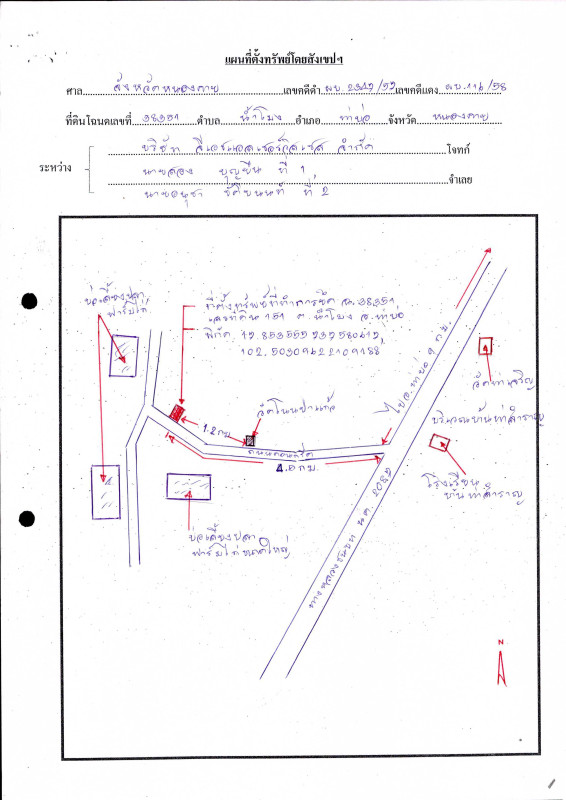 แผนที่ตั้งทรัพย์โดยสังเขปฯ
ศาล จังหวัดหนองคาย เลขคดีดำ ผบ. 2342/57 เลขคดีแดง ผบ. 116/58
ที่ดินโฉนดเลขที่ 38351 ตำบล น้ำโมง อำเภอ ท่าบ่อ จังหวัด หนองคาย
บริษัท ลีเอชแอล จำกัด โจทก์
ระหว่าง
นายฉลอง บุญยืน ที่ 1,
จำเลย
นายอนุชา ที่ 2
บ่อเลี้ยงปลา
ฟาร์มไก่
ที่ตั้งทรัพย์ที่ทำการยึด ฉ. 38351
เลขที่ดิน 151 ต. น้ำโมง อ. ท่าบ่อ
พิกัด 17.853555232580412,
102.50309422109188
1.2 กม
วัดโนนป่าแก้ว
ถนนคอนกรีต
4.0 กม.
ไป อ. ท่าบ่อ 9 กม.
วัดท่าเจริญ
บริเวณบ้านท่าสำราญ
โรงเรียน
บ้านท่าสำราญ
บ่อเลี้ยงปลา
ฟาร์มไก่ขนาดใหญ่
ทางหลวงชนบท นค. 2082
N